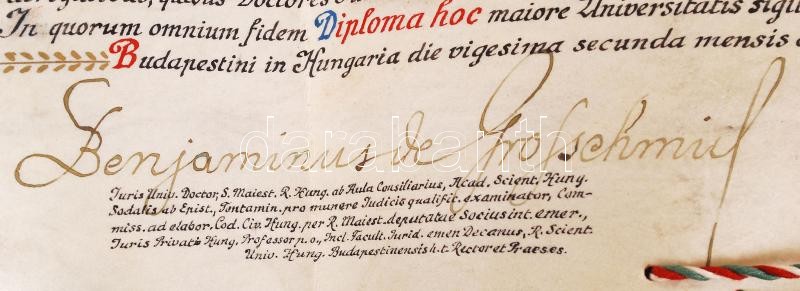 quibus Doctores
In quorum omnium fidem Diploma hoc maiore Universitatis sigil
Budapestini in Hungaria die vigesima secunda mensis
Benjaminus de Grosschmid
Juris Univ. Doctor, S. Maiest. R. Hung. ab Aula Consiliarius, Acad. Scient. Hung.
Sodalis ab Epist., Tentamin. pro munere Judicis qualifit. examinator, Com-
miss. ad elabor. Cod. Civ. Hung. per R. Maiest. deputatae Socius int. emer.,
Juris Privati Hung. Professor p. o., Incl. Facult. Jurid. emer. Decanus, R. Scient.
Univ. Hung. Budapestinensis h. t. Rector et Praeses.
darabanth